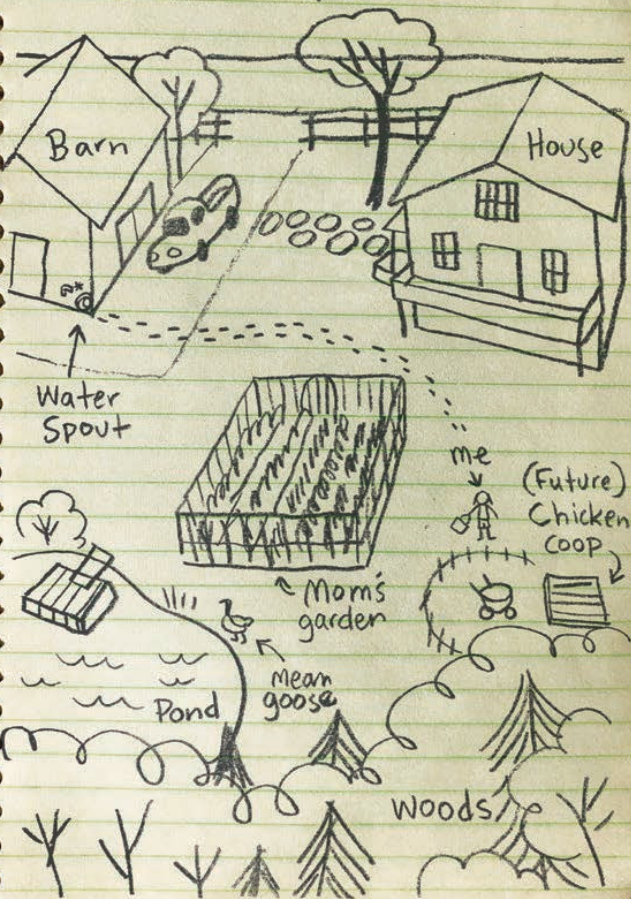 Barn
House
Water
Spout
me
(Future)
Chicken
coop
Mom's
garden
mean
goose
Pond
Woods